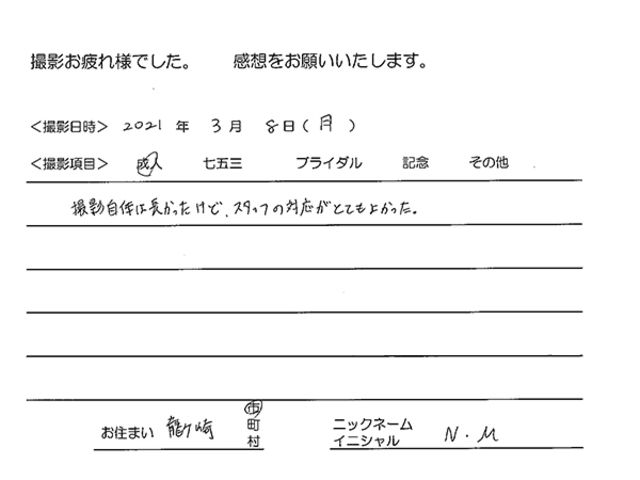 撮影お疲れ様でした。 感想をお願いいたします。
<撮影日時> 2021 年 3 月 8 日 ( 月 )
<撮影項目> 成人 七五三 ブライダル 記念 その他
撮影自体は長かったけど、スタッフの対応がとてもよかった。
お住まい 龍ケ崎 市 町 村 ニックネーム イニシャル N.M